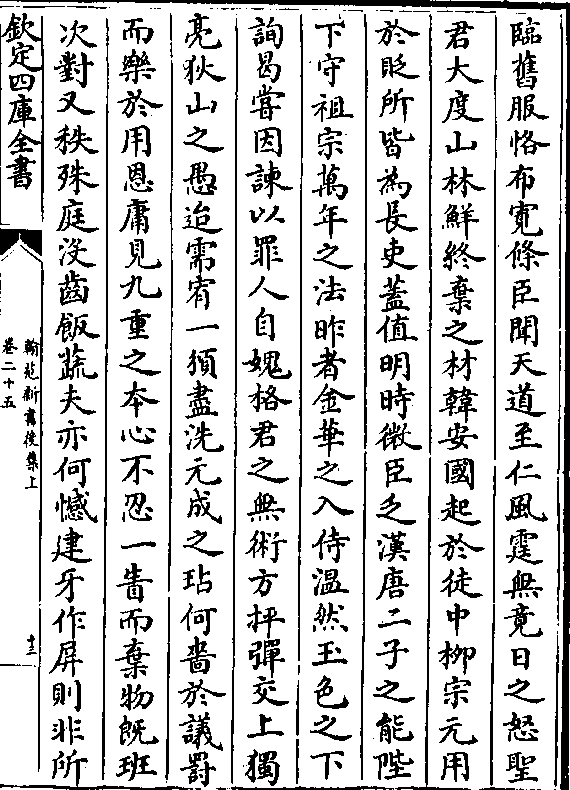 臨舊服恪布寛條臣聞天道至仁風霆無竟日之怒聖
君大度山林鮮終棄之材韓安國起於徒中柳宗元用
於貶所皆為長吏蓋值明時微臣乏漢唐二子之能陛
下守祖宗萬年之法昨者金華之入侍温然玉色之下
詢曷嘗因諫以罪人自媿格君之無術方抨彈交上獨
亮狄山之愚迨需宥一頒盡洗元成之玷何嗇於議罰
而樂於用恩庸見九重之本心不忍一眚而棄物既班
次對又秩殊庭没齒飯蔬夫亦何憾建牙作屏則非所
欽定四庫全書
翰苑新書後集上
卷二十五
十三